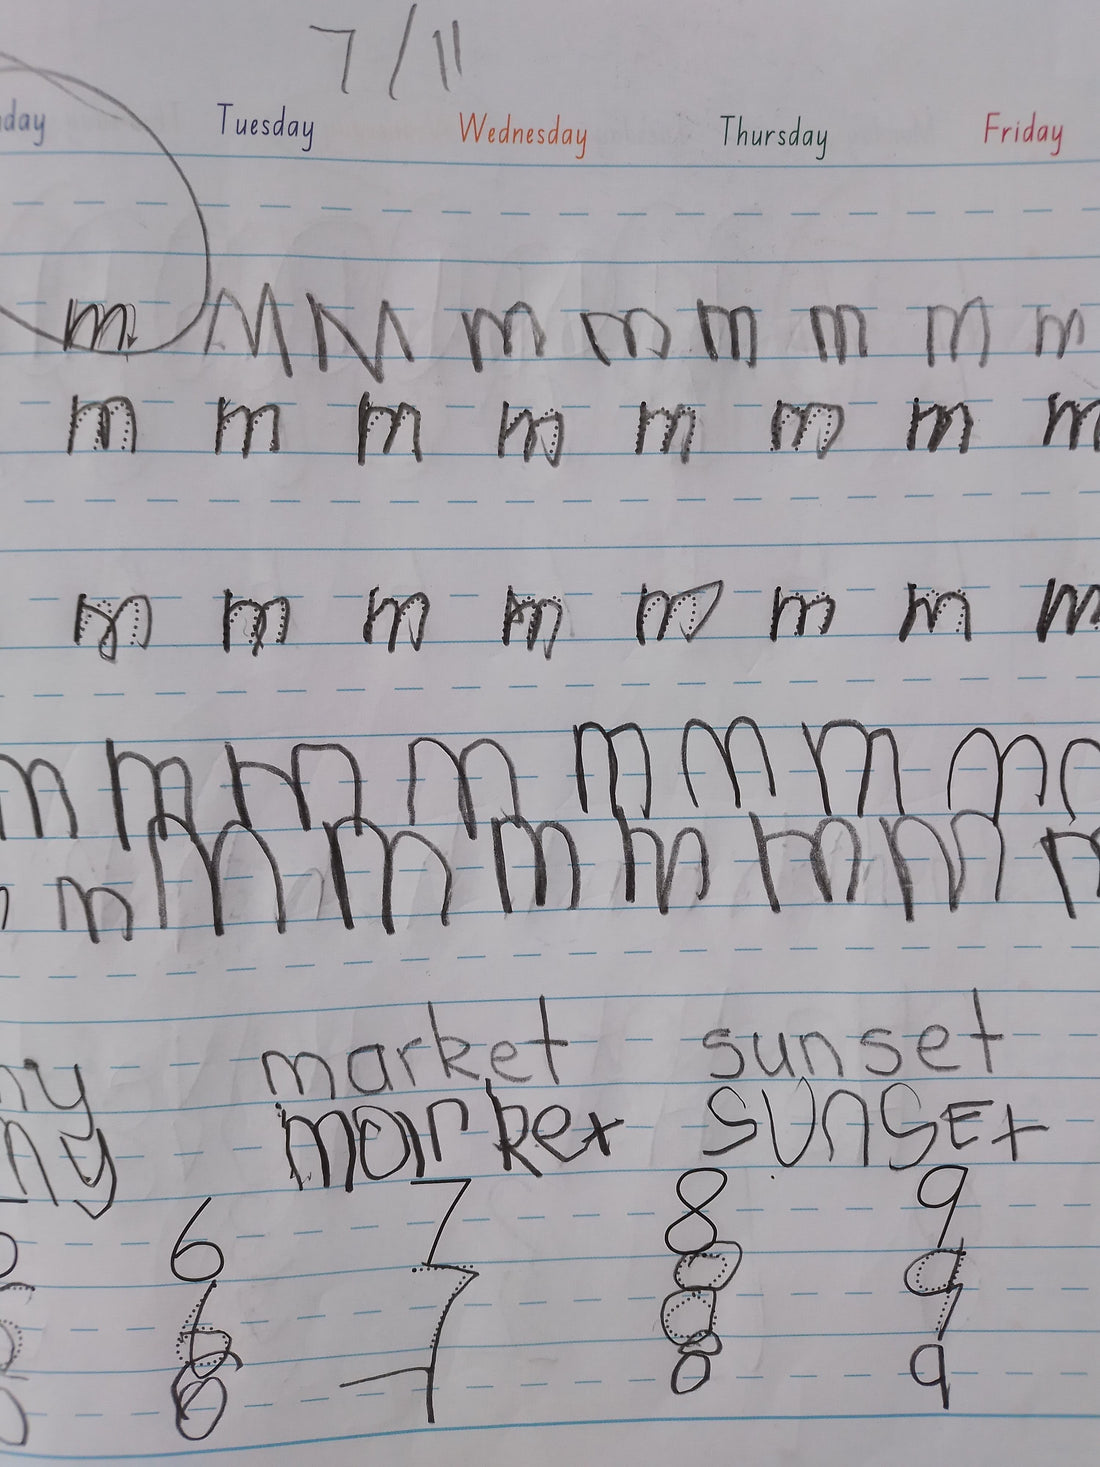 7/11
day Tuesday Wednesday Thursday Friday
m M M m m m m m m
m m m m m m m m
m m m m m m m m
m m m m m m m m
m m m m m m m m
market sunset
market sunsEt
6 7 8 9
6 7 8 9
7 9